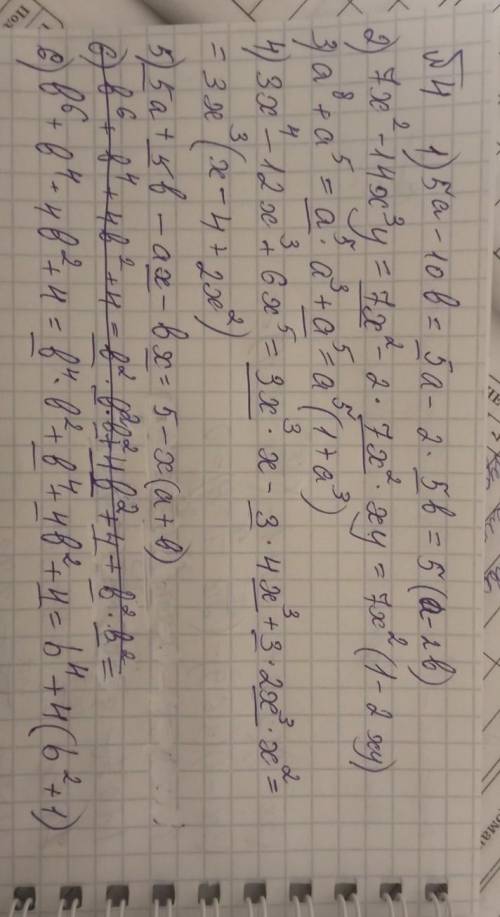 №4 1) 5a - 10b = 5a - 2 · 5b = 5(a - 2b)
2) 7x² - 14x³y = 7x² - 2 · 7x² · xy = 7x²(1 - 2xy)
3) a⁸ + a⁵ = a⁵ · a³ + a⁵ = a⁵(1 + a³)
4) 3x⁴ - 12x³ + 6x⁵ = 3x³ · x - 3 · 4x³ + 3 · 2x³ · x² =
= 3x³(x - 4 + 2x²)
5) 5a + 5b - ax - bx = 5 - x(a + b)
6) b⁶ + b⁴ + 4b² + 4 = b² · b² b² + 4b² + 4 + b² · b² =
6) b⁶ + b⁴ + 4b² + 4 = b⁴ · b² + b⁴ + 4b² + 4 = b⁴ + 4(b² + 1)